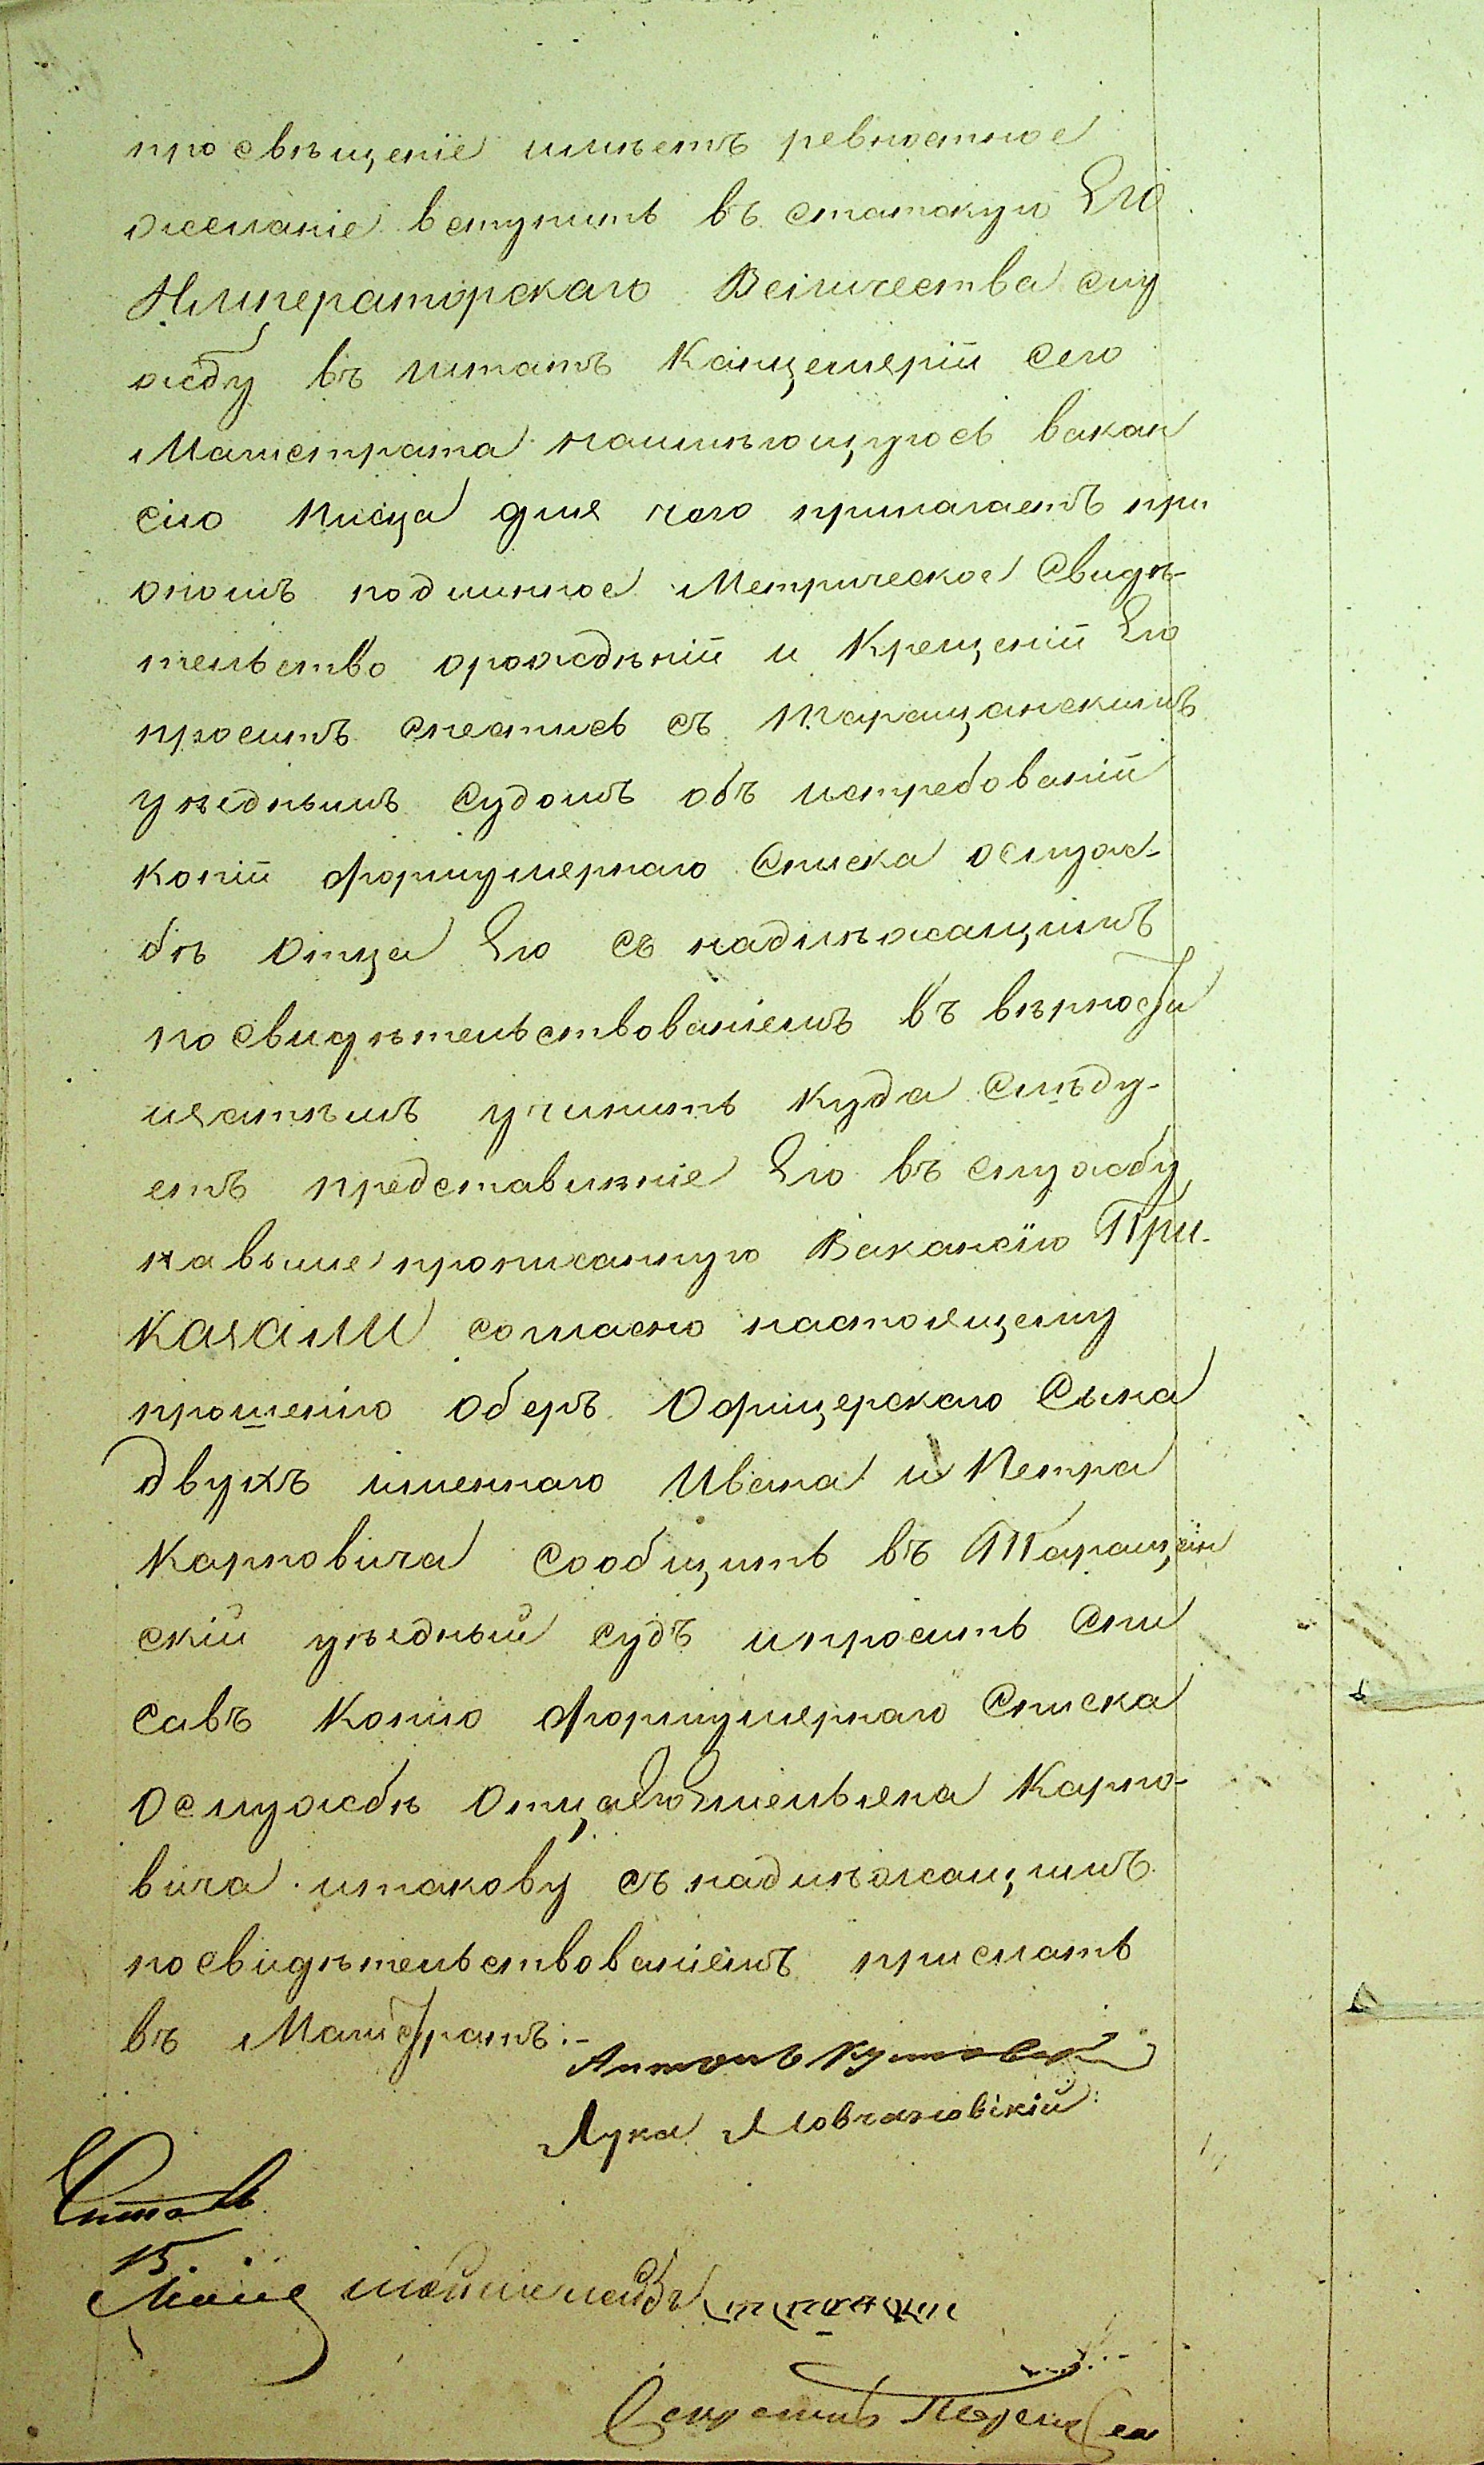 просвѣщеніе имѣетъ ревностное
желаніе вступить въ статскую Его
Императорскаго Величества слу
жбу въ штатъ Канцеляріи сего
Магистрата наимѣющуюсь вакан
сію писца для чего прилагаетъ при
ономъ подлинное Метрическое Свидѣ-
тельство орождѣніи и Крещеніи Его
проситъ снестись съ Таращанскимъ
уѣзднымъ Судомъ объ истребованіи
копіи формулярнаго Списка ослуж-
бѣ Отца Его съ надлѣжащимъ
посвидѣтельствованіемъ въ вѣрности
изатѣмъ учинить куда слѣду-
етъ представлѣніе Его въ службу
навыше прописанную Вакансію При-
казали согласно настоящему
прошенію Оберъ Офицерскаго Сына
двухъ именнаго Ивана и Петра
Карповича сообщить въ Таращан
скій уѣздный судъ ипросить Спи
савъ Копію формулярнаго Списка
Ослужбѣ Отца Его Емельяна Карпо-
вича итакову съ надлѣжащимъ
посвидѣтельствованіемъ прислать
въ Магистратъ:-
Антонъ
Лука
15.
Секретарь